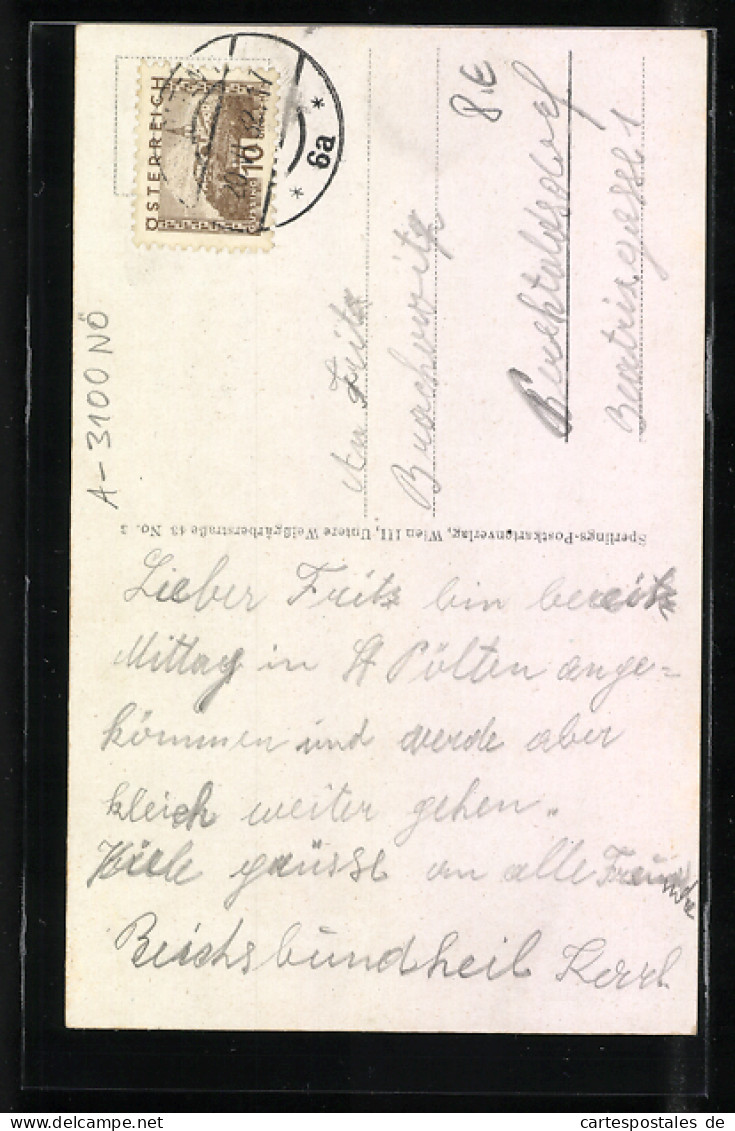 ÖSTERREICH
10
* 6a *
8.€
An Fritz
Buchowitz
Perchtoldsdorf
Beatrixgasse 1
A-3100 NÖ
Sperlings-Postkartenverlag, Wien III, Untere Weißgärberstraße 43 No. 3
Lieber Fritz bin bereits
Mittag in St Pölten ange-
kommen und werde aber
kleich weiter gehen.
Viele grüsse an alle Freunde
Reichsbundheil Karl
cartespostales de